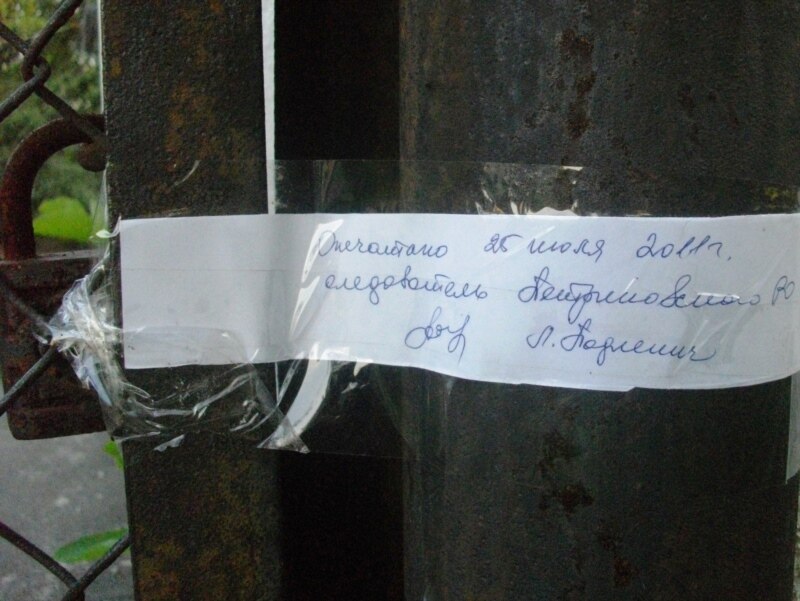 Опечатано 25 июля 2011г.
следователь Петриковского РО
Л. Подленич